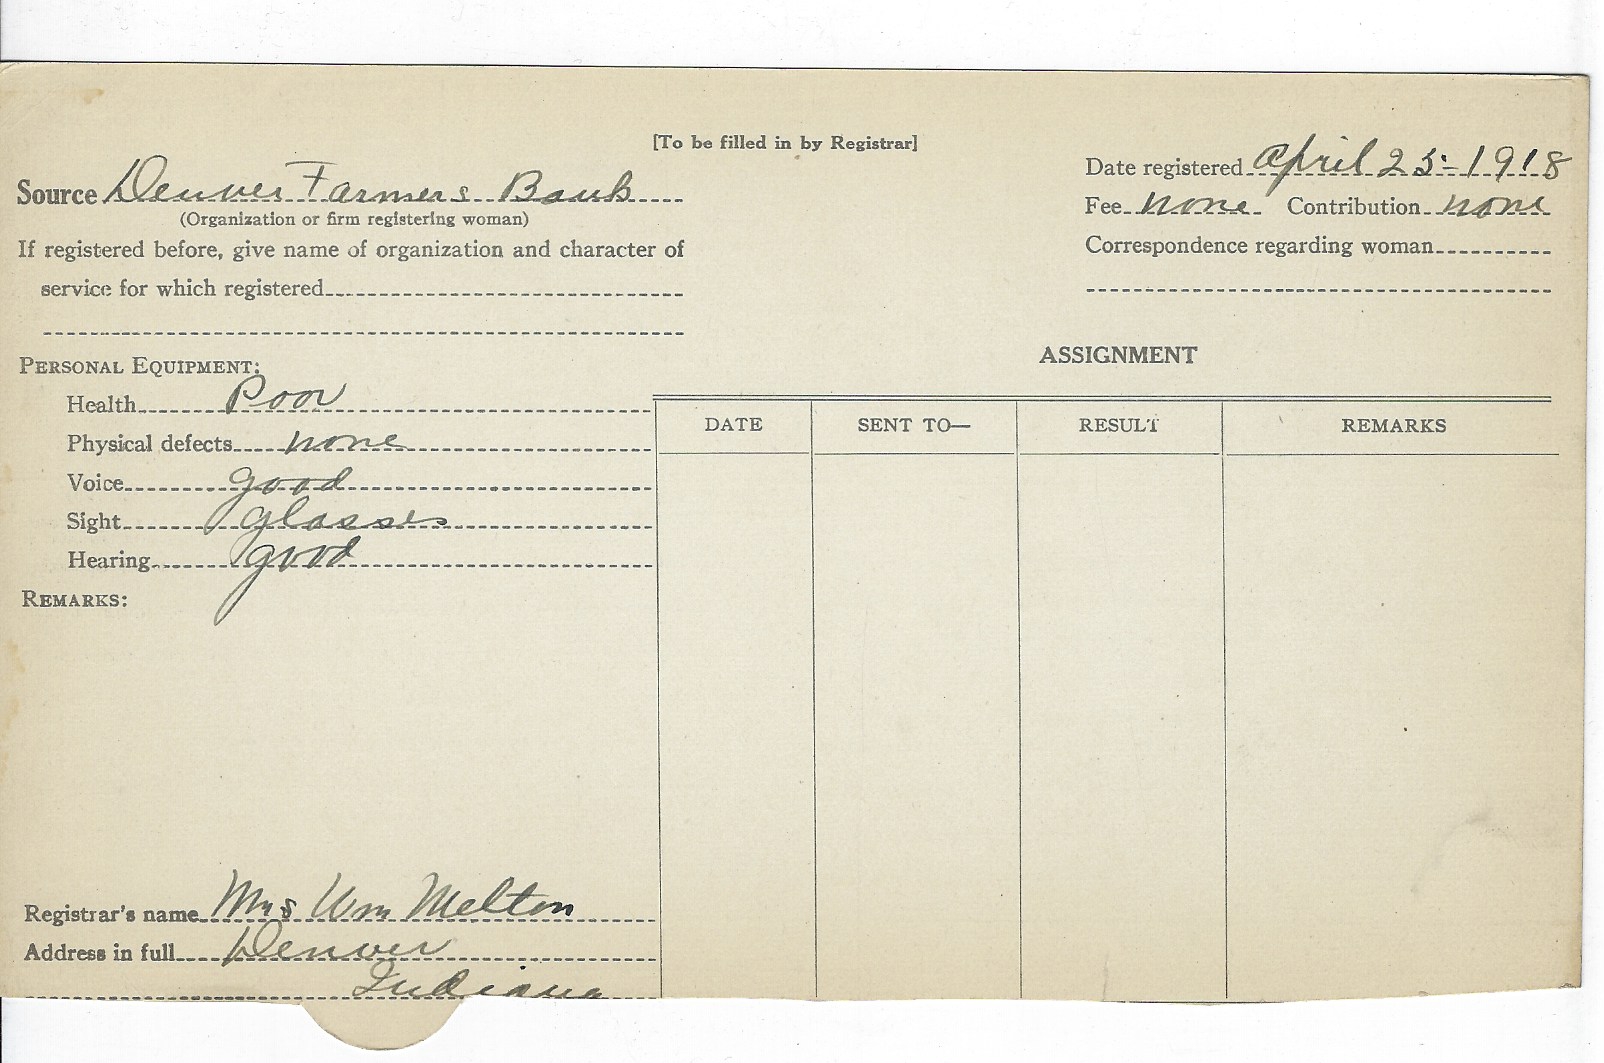 [To be filled in by Registrar]
Source Denver Farmers Bank
(Organization or firm registering woman)
If registered before, give name of organization and character of
service for which registered
Date registered April 25-1918
Fee none Contribution none
Correspondence regarding woman
PERSONAL EQUIPMENT:
Health Poor
Physical defects none
Voice good
Sight glasses
Hearing good
REMARKS:
ASSIGNMENT
DATE SENT TO— RESULT REMARKS
Registrar's name Mrs Wm Melton
Address in full Denver
Indiana